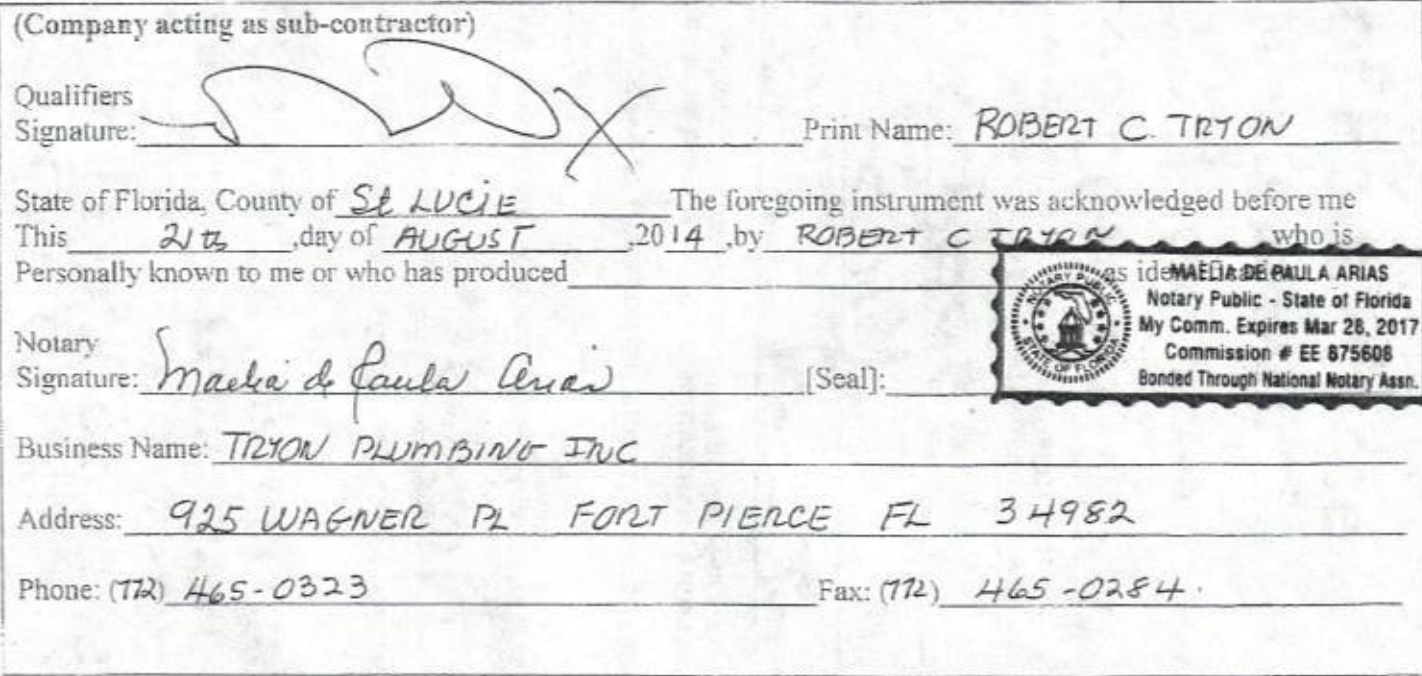 (Company acting as sub-contractor)
Qualifiers
Signature: Print Name: ROBERT C. TRYON
State of Florida, County of St LUCIE The foregoing instrument was acknowledged before me
This 21th ,day of AUGUST ,2014 ,by ROBERT C TRYON who is
Personally known to me or who has produced as
MAELIA DE PAULA ARIAS
NOTARY PUBLIC
STATE OF FLORIDA
Notary Public - State of Florida
My Comm. Expires Mar 26, 2017
Commission # EE 875608
Bonded Through National Notary Assn.
Notary
Signature: Maelia de Paula Arias [Seal]:
Business Name: TRYON PLUMBING INC
Address: 925 WAGNER PL FORT PIERCE FL 34982
Phone: (772) 465-0323 Fax: (772) 465-0284.